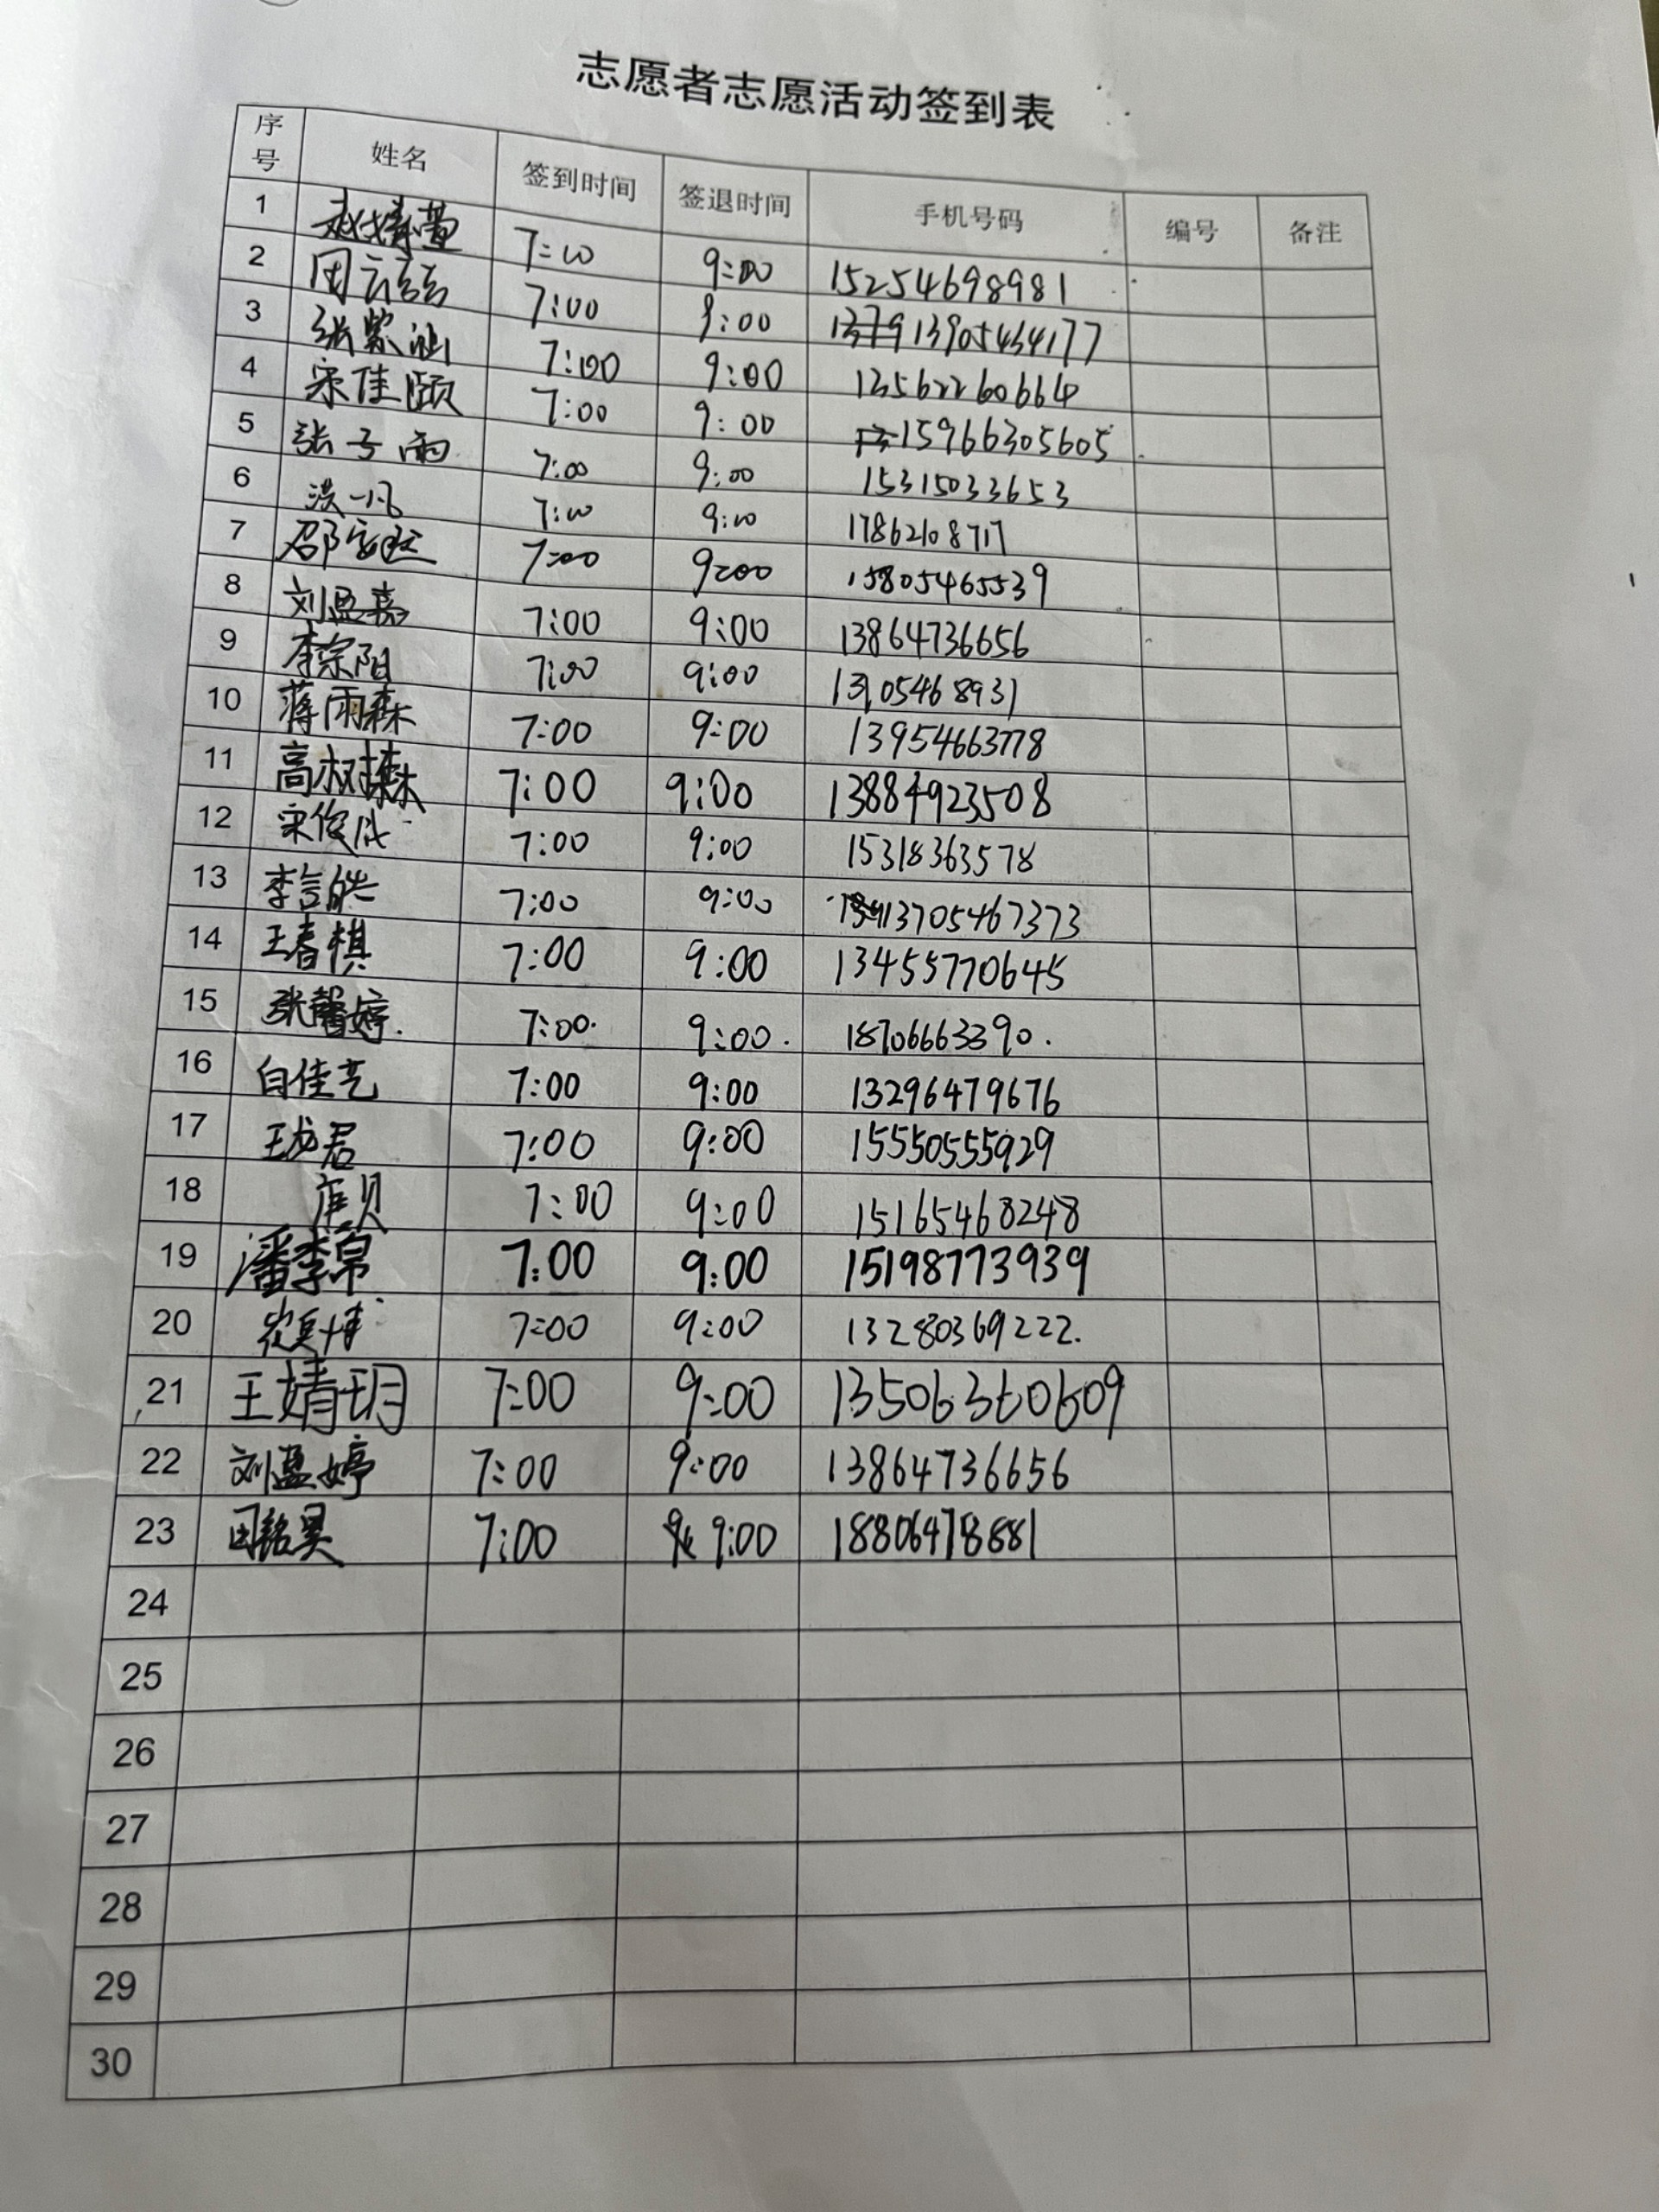 志愿者志愿活动签到表
序号 姓名 签到时间 签退时间 手机号码 编号 备注
1 7:00 9:00 15254698981
2 7:00 9:00 13905464177
3 张紫涵 7:00 9:00 13562260664
4 宋佳颐 7:00 9:00 15966305605
5 张子雨 7:00 9:00 15315033653
6 洪一凡 7:00 9:00 17862108717
7 7:00 9:00 15805465539
8 刘盈嘉 7:00 9:00 13864736656
9 李宗阳 7:00 9:00
10 蒋雨森 7:00 9:00 13954663778
11 7:00 9:00 13884923508
12 宋俊成 7:00 9:00 15318363578
13 李言皓 7:00 9:00 13705467373
14 王春棋 7:00 9:00 13455770645
15 张馨婷. 7:00. 9:00. 18706663390.
16 白佳艺 7:00 9:00 13296479676
17 王龙君 7:00 9:00 15550555929
18 7:00 9:00 15165468248
19 7:00 9:00 15198773939
20 7:00 9:00 13280369222.
21 王婧玥 7:00 9:00 13506360609
22 刘盈婷 7:00 9:00 13864736656
23 田铭昊 7:00 9:00 18806478881
24
25
26
27
28
29
30